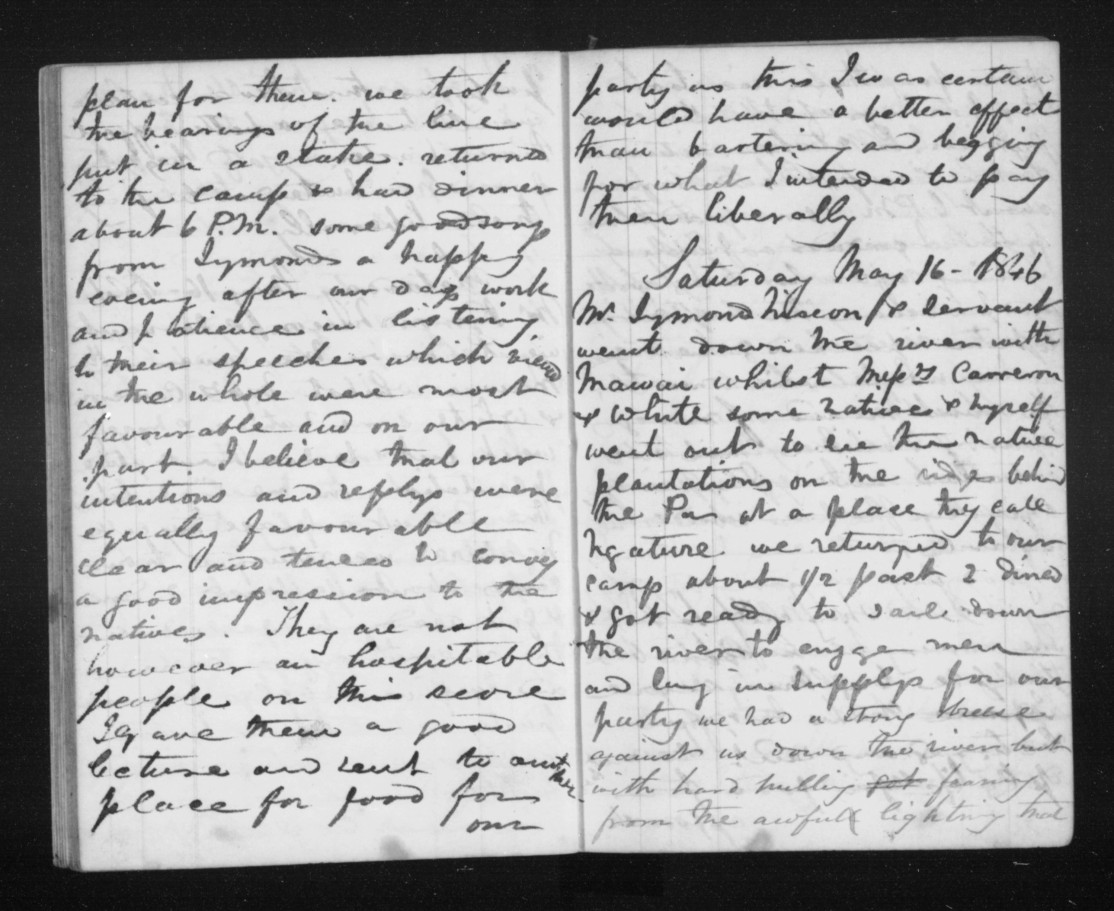 plan for them. we took
the bearings of the line
put in a stake. returned
to the camp & had dinner
about 6 P.M. some good songs
from Symonds a happy
evening after our days work
and patience in listening
to their speeches which
in the whole were most
favourable and on our
part. I believe that our
intentions and replys were
equally favourable
clear and tended to convey
a good impression to the
natives. They are not
however an hospitable
people on this score
I gave them a good
lecture and sent to another
place for food for
our
party as this I was certain
would have a better effect
than bartering and begging
for what I intended to pay
them liberally
Saturday May 16 - 1846
Mr. Symonds & Servant
went down the river with
Mawai whilst Messrs Cameron
& White some natives & myself
went out to see the native
plantations on the side behind
the Pa at a place they call
Ngature we returned to our
camp about 1/2 past 2 dined
& got ready to sail down
the river to engage men
and buy in supplys for our
party we had a strong breese
against us down the river but
with hard pulling fearing
from the awful lightning that